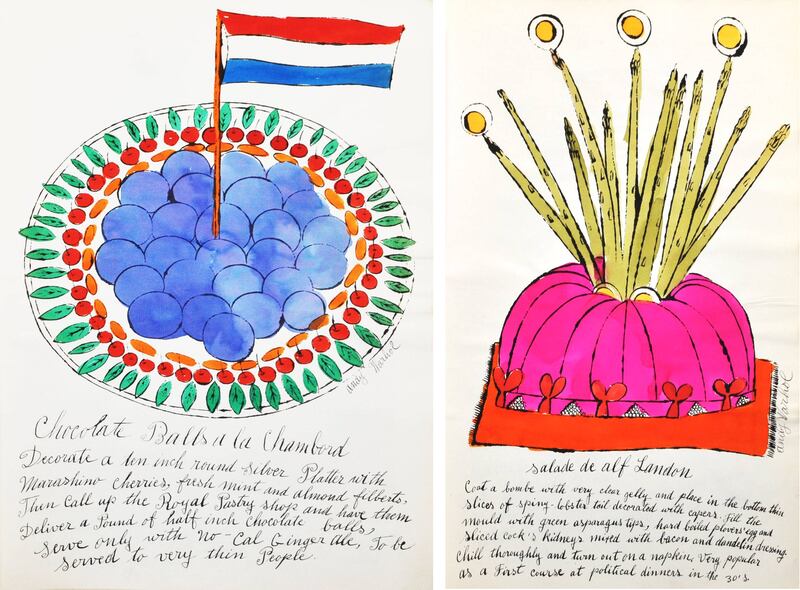 Andy Warhol
Chocolate Balls a la Chambord
Decorate a ten inch round silver Platter with
Marashino cherries, fresh mint and almond filberts.
Then Call up the Royal Pastry shop and have them
Deliver a Pound of half inch chocolate balls,
Serve only with No-Cal Ginger Ale, To be
Served to very thin People.
Andy Warhol
salade de alf Landon
Coat a bombe with very clear gelly and place in the bottom thin
slices of spiny-lobster tail decorated with capers. Fill the
mould with green asparagus tips, hard boiled plovers' egg and
sliced cock's kidneys mixed with bacon and dandelin dressing.
Chill thoroughly and turn out on a napkin. Very popular
as a First course at political dinners in the 30's.